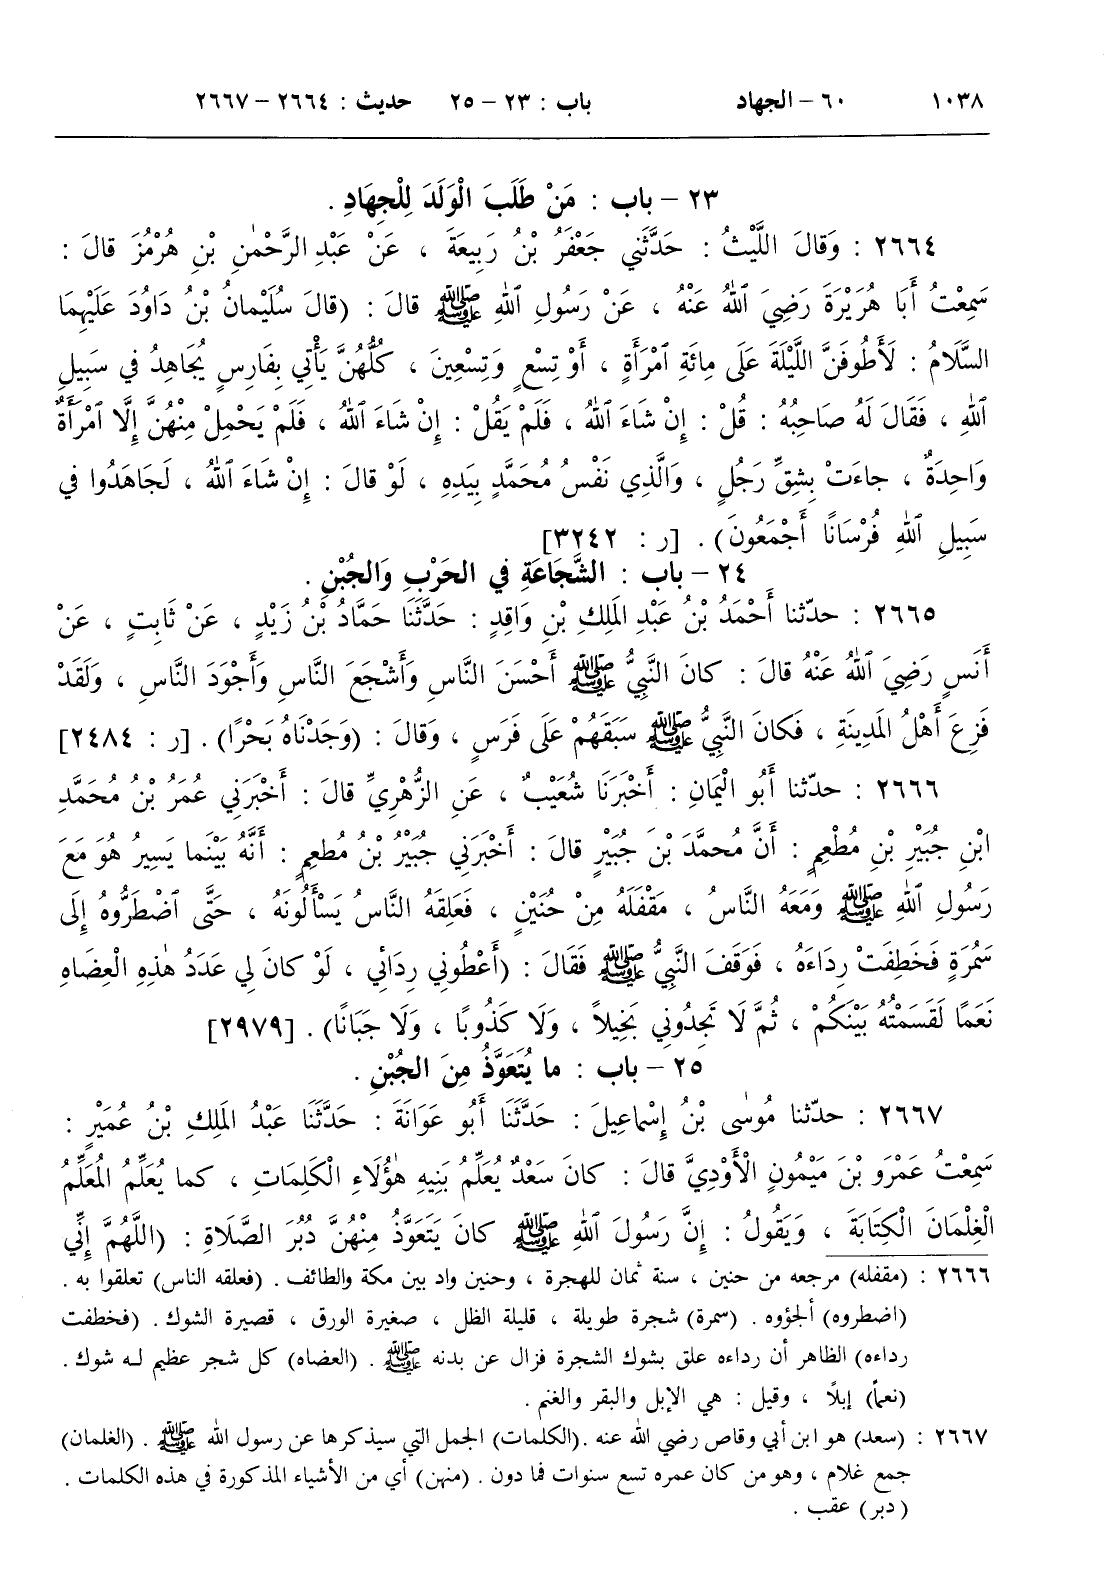 ١٠٣٨ ٦٠ – الجهاد باب : ٢٣ – ٢٥ حديث : ٢٦٦٤ – ٢٦٦٧
٢٣ – باب : مَنْ طَلَبَ الْوَلَدَ لِلْجِهَادِ .
٢٦٦٤ : وَقالَ اللَّيْثُ : حَدَّثَنِي جَعْفَرُ بْنُ رَبِيعَةَ ، عَنْ عَبْدِ الرَّحْمٰنِ بْنِ هُرْمُزَ قالَ :
سَمِعْتُ أَبَا هُرَيْرَةَ رَضِيَ ٱللهُ عَنْهُ ، عَنْ رَسُولِ ٱللهِ ﷺ قالَ : (قالَ سُلَيْمانُ بْنُ دَاوُدَ عَلَيْهِمَا
السَّلَامُ : لَأَطُوفَنَّ اللَّيْلَةَ عَلَى مِائَةِ ٱمْرَأَةٍ ، أَوْ تِسْعٍ وَتِسْعِينَ ، كُلُّهُنَّ يَأْتِي بِفَارِسٍ يُجَاهِدُ في سَبِيلِ
ٱللهِ ، فَقَالَ لَهُ صَاحِبُهُ : قُلْ : إِنْ شَاءَ ٱللهُ ، فَلَمْ يَقُلْ : إِنْ شَاءَ ٱللهُ ، فَلَمْ يَحْمِلْ مِنْهُنَّ إِلَّا ٱمْرَأَةٌ
وَاحِدَةٌ ، جاءَتْ بِشِقِّ رَجُلٍ ، وَالَّذِي نَفْسُ مُحَمَّدٍ بِيَدِهِ ، لَوْ قالَ : إِنْ شَاءَ ٱللهُ ، لَجَاهَدُوا في
سَبِيلِ ٱللهِ فُرْسَانًا أَجْمَعُونَ) . [ر : ٣٢٤٢]
٢٤ – باب : الشَّجَاعَةِ في الحَرْبِ وَالجُبْنِ .
٢٦٦٥ : حدّثنا أَحْمَدُ بْنُ عَبْدِ المَلِكِ بْنِ وَاقِدٍ : حَدَّثَنَا حَمَّادُ بْنُ زَيْدٍ ، عَنْ ثَابِتٍ ، عَنْ
أَنَسٍ رَضِيَ ٱللهُ عَنْهُ قالَ : كانَ النَّبِيُّ ﷺ أَحْسَنَ النَّاسِ وَأَشْجَعَ النَّاسِ وَأَجْوَدَ النَّاسِ ، وَلَقَدْ
فَزِعَ أَهْلُ المَدِينَةِ ، فَكانَ النَّبِيُّ ﷺ سَبَقَهُمْ عَلَى فَرَسٍ ، وَقالَ : (وَجَدْنَاهُ بَحْرًا) . [ر : ٢٤٨٤]
٢٦٦٦ : حدّثنا أَبُو الْيَمَانِ : أَخْبَرَنَا شُعَيْبٌ ، عَنِ الزُّهْرِيِّ قالَ : أَخْبَرَنِي عُمَرُ بْنُ مُحَمَّدِ
ابْنِ جُبَيْرِ بْنِ مُطْعِمٍ : أَنَّ مُحمَّدَ بْنَ جُبَيْرٍ قالَ : أَخْبَرَنِي جُبَيْرُ بْنُ مُطعِمٍ : أَنَّهُ بَيْنَما يَسِيرُ هُوَ مَعَ
رَسُولِ ٱللهِ ﷺ وَمَعَهُ النَّاسُ ، مَقْفَلَهُ مِنْ حُنَيْنٍ ، فَعَلِقَهُ النَّاسُ يَسْأَلُونَهُ ، حَتَّى ٱضْطَرُّوهُ إِلَى
سَمُرَةٍ فَخَطِفَتْ رِدَاءَهُ ، فَوَقَفَ النَّبِيُّ ﷺ فَقَالَ : (أَعْطُونِي رِدَائِي ، لَوْ كانَ لِي عَدَدُ هٰذِهِ الْعِضَاهِ
نَعَمًا لَقَسَمْتُهُ بَيْنَكُمْ ، ثُمَّ لَا تَجِدُونِي بَخِيلاً ، وَلَا كَذُوبًا ، وَلَا جَبَانًا) . [٢٩٧٩]
٢٥ – باب : ما يُتَعَوَّذُ مِنَ الجُبْنِ .
٢٦٦٧ : حدّثنا مُوسٰى بْنُ إِسْماعِيلَ : حَدَّثَنَا أَبُو عَوَانَةَ : حَدَّثَنَا عَبْدُ المَلِكِ بْنُ عُمَيْرٍ :
سَمِعْتُ عَمْرَو بْنَ مَيْمُونٍ الْأَوْدِيَّ قالَ : كانَ سَعْدٌ يُعَلِّمُ بَنِيهِ هٰؤُلَاءِ الْكَلِمَاتِ ، كما يُعَلِّمُ المُعَلِّمُ
الْغِلْمَانَ الْكِتَابَةَ ، وَيَقُولُ : إِنَّ رَسُولَ ٱللهِ ﷺ كانَ يَتَعَوَّذُ مِنْهُنَّ دُبُرَ الصَّلَاةِ : (اللَّهُمَّ إِنِّي
٢٦٦٦ : (مقفله) مرجعه من حنين ، سنة ثمان للهجرة ، وحنين واد بين مكة والطائف . (فعلقه الناس) تعلقوا به .
(اضطروه) ألجؤوه . (سمرة) شجرة طويلة ، قليلة الظل ، صغيرة الورق ، قصيرة الشوك . (فخطفت
رداءه) الظاهر أن رداءه علق بشوك الشجرة فزال عن بدنه ﷺ . (العضاه) كل شجر عظيم لـه شوك .
(نعماً) إبلًا ، وقيل : هي الإبل والبقر والغنم .
٢٦٦٧ : (سعد) هو ابن أبي وقاص رضي الله عنه .(الكلمات) الجمل التي سيذكرها عن رسول الله ﷺ . (الغلمان)
جمع غلام ، وهو من كان عمره تسع سنوات فما دون . (منهن) أي من الأشياء المذكورة في هذه الكلمات .
(دبر) عقب .